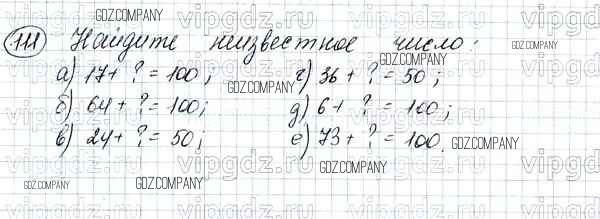 GDZ.COMPANY
111 Найдите неизвестное число:
GDZ.COMPANY
GDZ.COMPANY
а) 17 + ? = 100; г) 36 + ? = 50;
GDZ.COMPANY
б) 64 + ? = 100; д) 6 + ? = 100;
GDZ.COMPANY
в) 24 + ? = 50; е) 73 + ? = 100.
GDZ.COMPANY
GDZ.COMPANY
GDZ.COMPANY
GDZ.COMPANY
vipgdz.ru vipgdz.ru vipgdz.ru